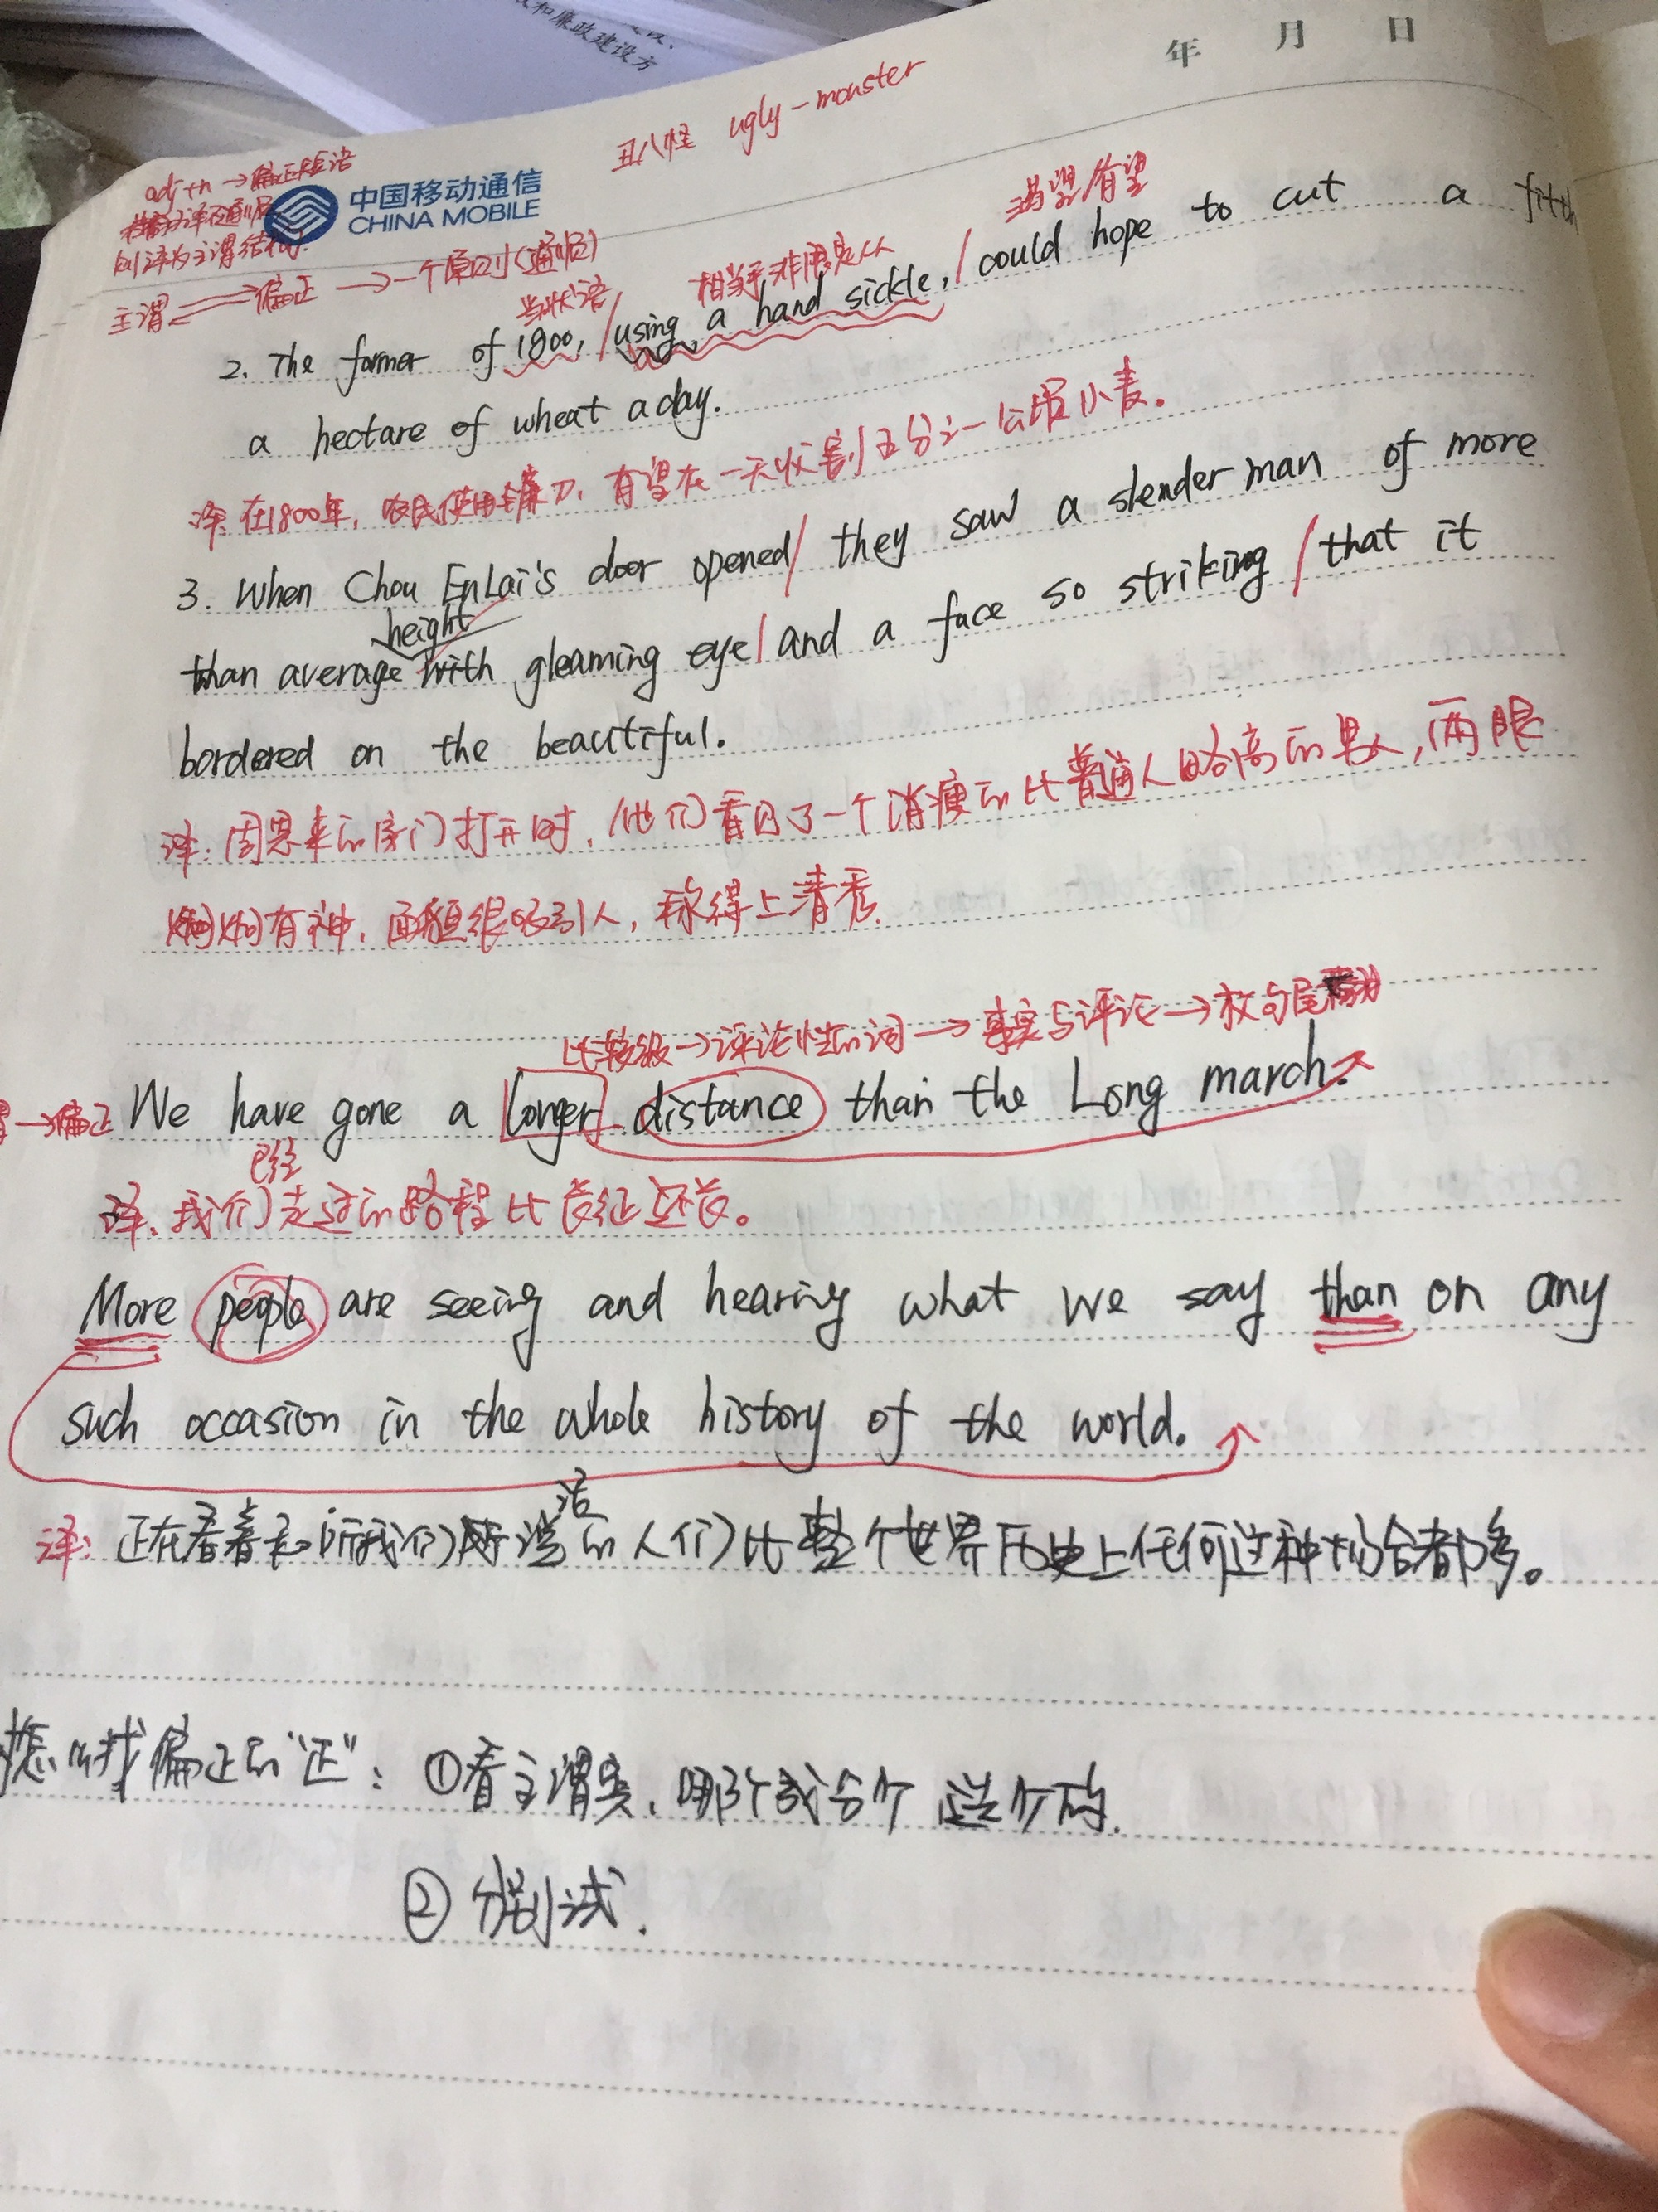 和廉政建设方
年 月 日
丑八怪 ugly-monster
adj+n→偏正短语
则译为主谓结构.
中国移动通信
CHINA MOBILE
主谓 偏正 →一个原则(通顺)
当状语
相当于非限定从
渴望/有望
2. The farmer of 1800, / using a hand sickle, / could hope to cut a fifth
a hectare of wheat a day.
译 在1800年, 农民使用镰刀, 有望在一天收割五分之一公顷小麦。
3. When Chou EnLai's door opened / they saw a slender man of more
height
than average with gleaming eye / and a face so striking / that it
bordered on the beautiful.
译: 周恩来的房门打开时, 他们看见了一个消瘦的比普通人略高的男人, 两眼
炯炯有神, 面貌很吸引人, 称得上清秀.
比较级→评论性的词→事实与评论→放句尾
→偏正 We have gone a longer distance than the Long march.
已经
译. 我们走过的路程比长征还长。
More people are seeing and hearing what we say than on any
such occasion in the whole history of the world.
话
译: 正在看着和听我们所说的人们比整个世界历史上任何这种场合者都多。
怎么找偏正的"正": ①看主谓宾, 哪个成分个
②分别试.